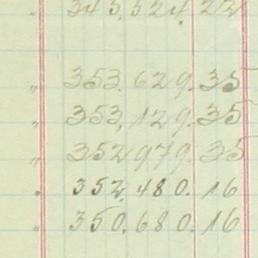 345,524. 22
" 353.629. 35
" 353,129. 35
" 352979. 35
" 352,480. 16
" 350,680. 16